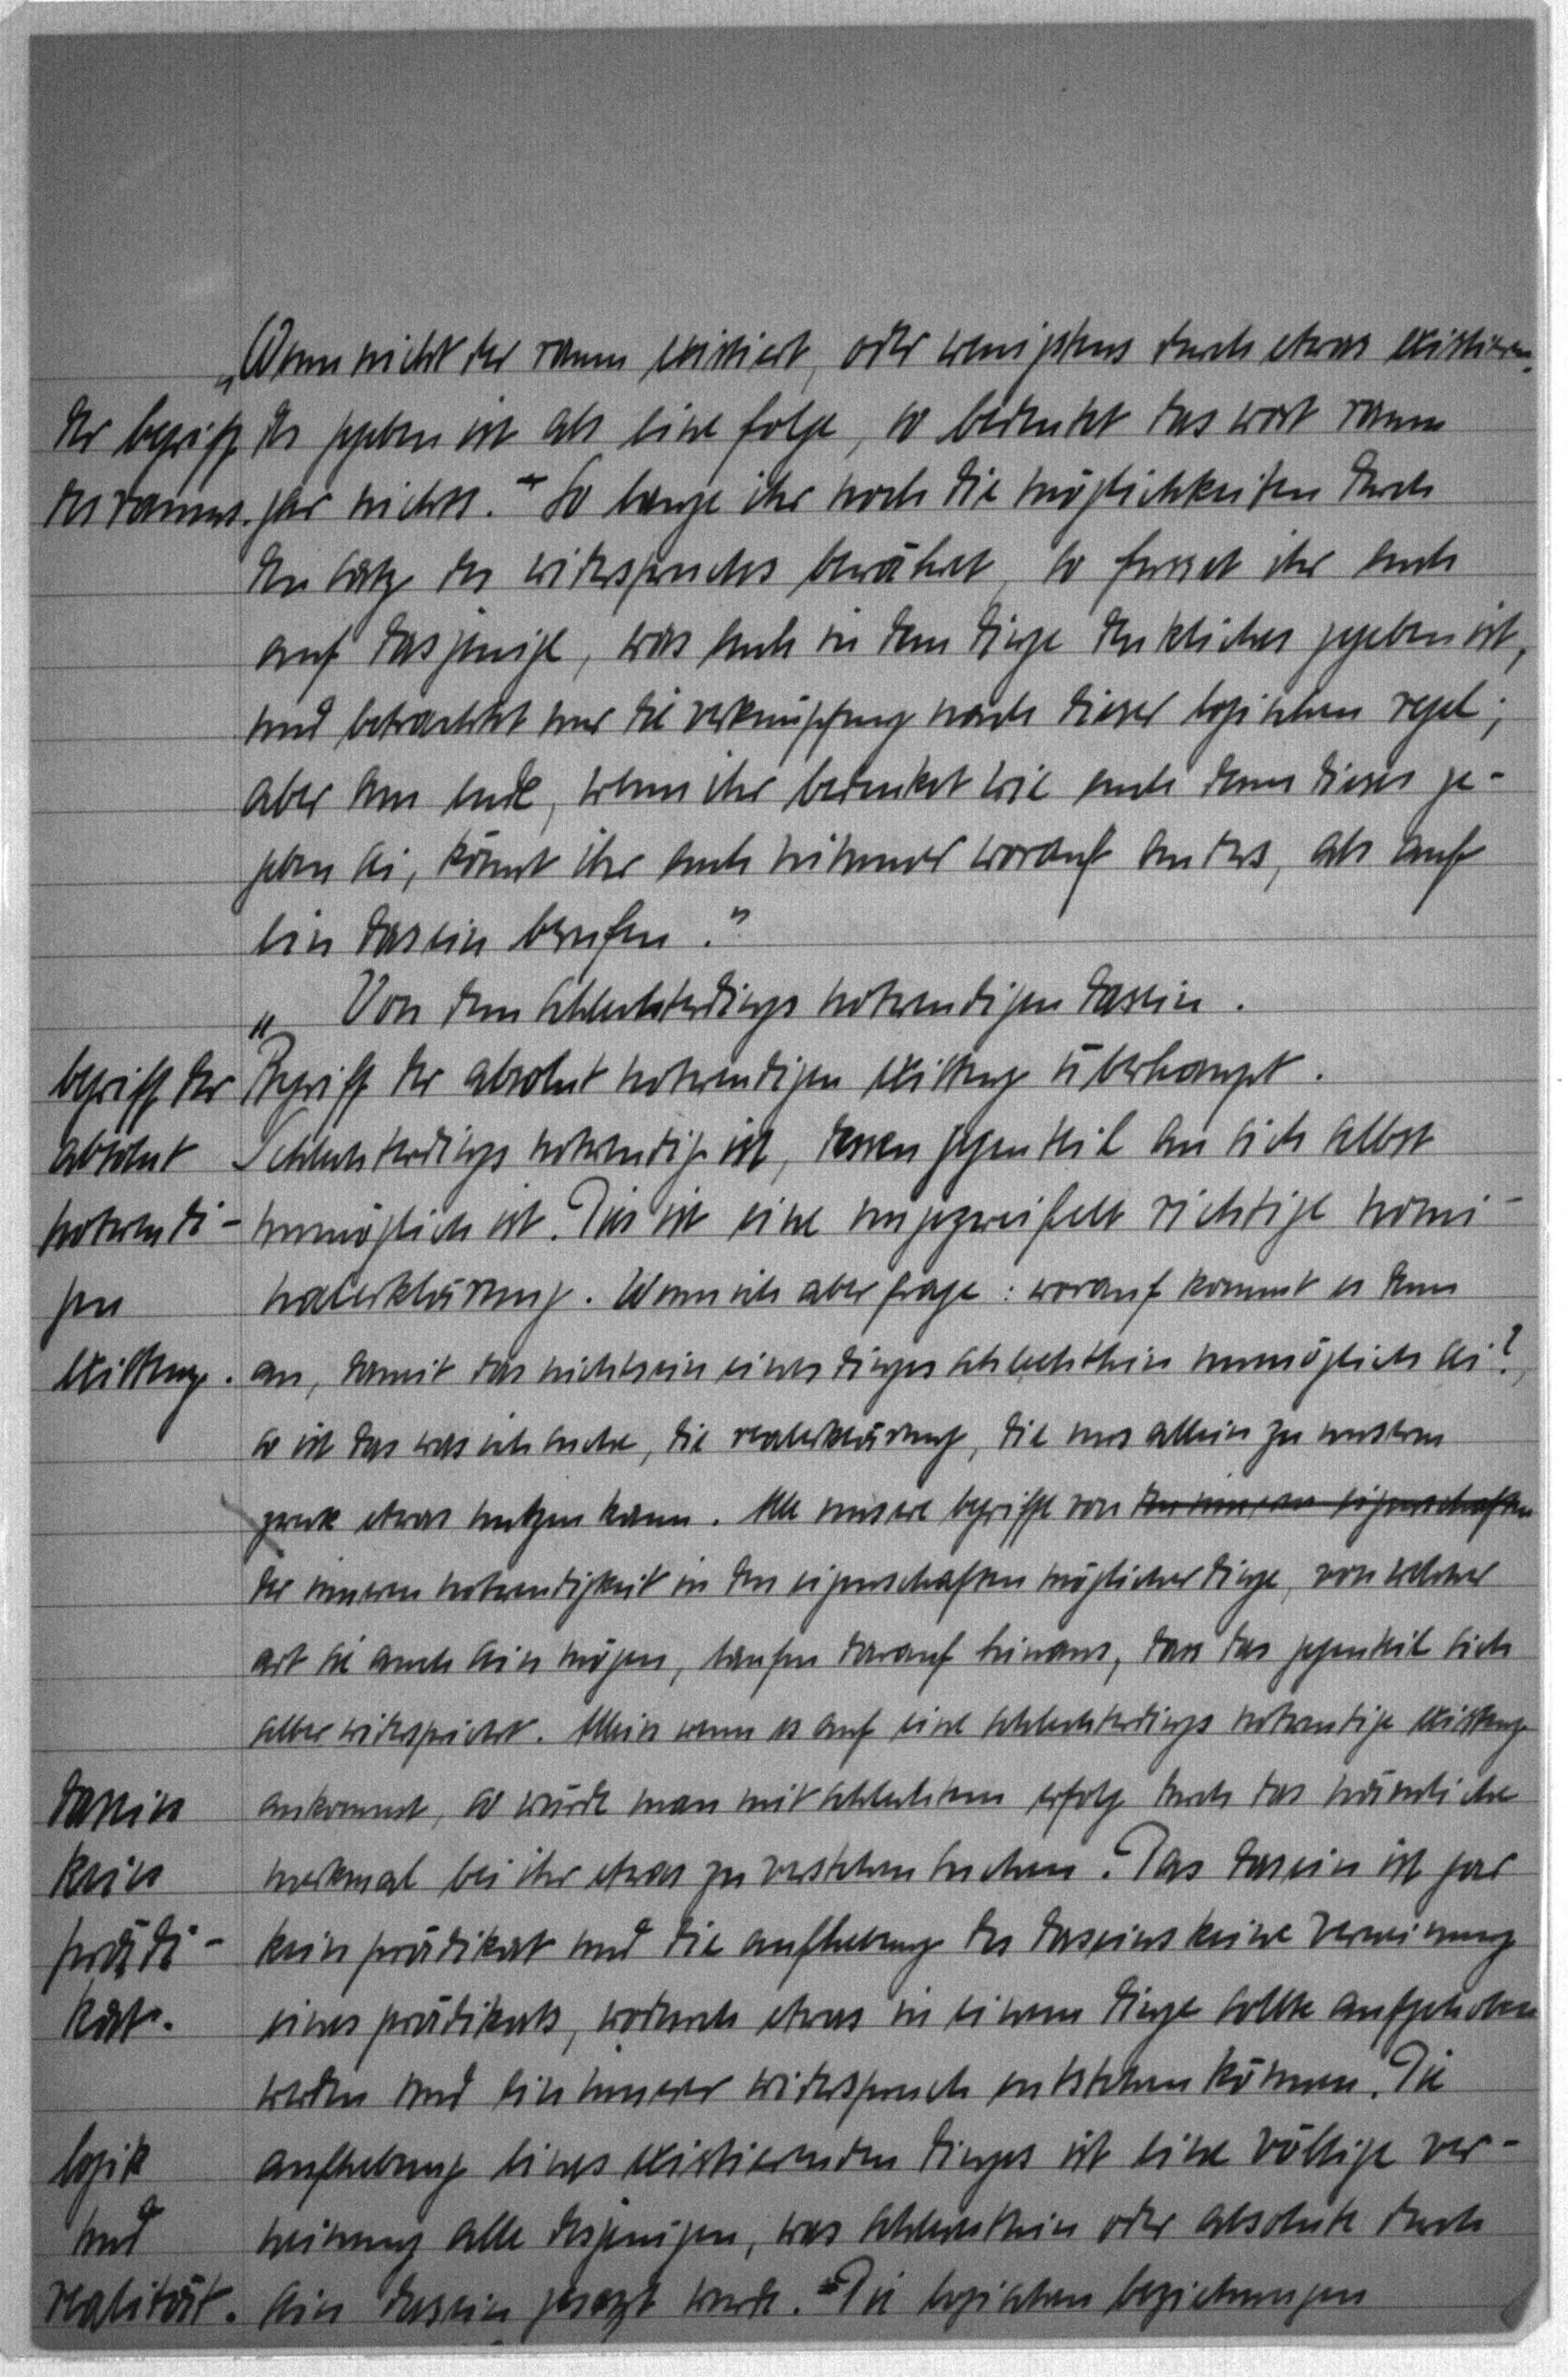 „Wenn nicht der raum existiert, oder wenigstens durch etwas existieren-
der begriff
des gegeben ist als eine folge, so bedeutet das wort raum
des raumes.
gar nichts. So lange ihr noch die möglichkeiten durch
den satz des widerspruches bewähret, so fusset ihr euch
auf dasjenige, was euch in dem dinge denkliches gegeben ist,
und betrachtet nur die verknüpfung nach dieser logischen regel;
aber am ende, wenn ihr bedenket wie euch denn dieses ge-
geben sei, könnt ihr euch nimmer worauf anders, als auf
ein dasein berufen."
„ Von dem schlechterdings notwendigen dasein.
begriff der
Begriff der absolut notwendigen existenz überhaupt.
absolut
Schlechterdings notwendig ist, dessen gegenteil an sich selbst
notwendi-
unmöglich ist. Dies ist eine ungezweifelt richtige nomi-
gen
nalerklärung. Wenn ich aber frage: worauf kommt es denn
existenz.
an, damit das nichtsein eines dinges schlechthin unmöglich sei?,
so ist das was ich suche, die realerklärung, die uns allein zu unserem
zwek etwas nutzen kann. Alle unsere begriffe von den inneren eigenschaften
der inneren notwendigkeit in den eigenschaften möglicher dinge, von welcher
art sie auch sein mögen, laufen darauf hinaus, dass das gegenteil sich
selber widerspricht. Allein wenn es auf eine schlechterdings notwendige existenz
dasein
ankommt, so würde man mit schlechtem erfolg durch das nämliche
kein
merkmal bei ihr etwas zu verstehen suchen. Das dasein ist gar
prädi-
kein prädikat und die aufhebung des daseins keine verneinung
kat.
eines prädikats, wodurch etwas in einem dinge sollte aufgehoben
werden und ein innerer widerspruch entstehen können. Die
logik
aufhebung eines existierenden dinges ist eine völlige ver-
und
neinung alle desjenigen, was schlechthin oder absolute durch
realität.
sein dasein gesezt wurde. Die logischen beziehungen